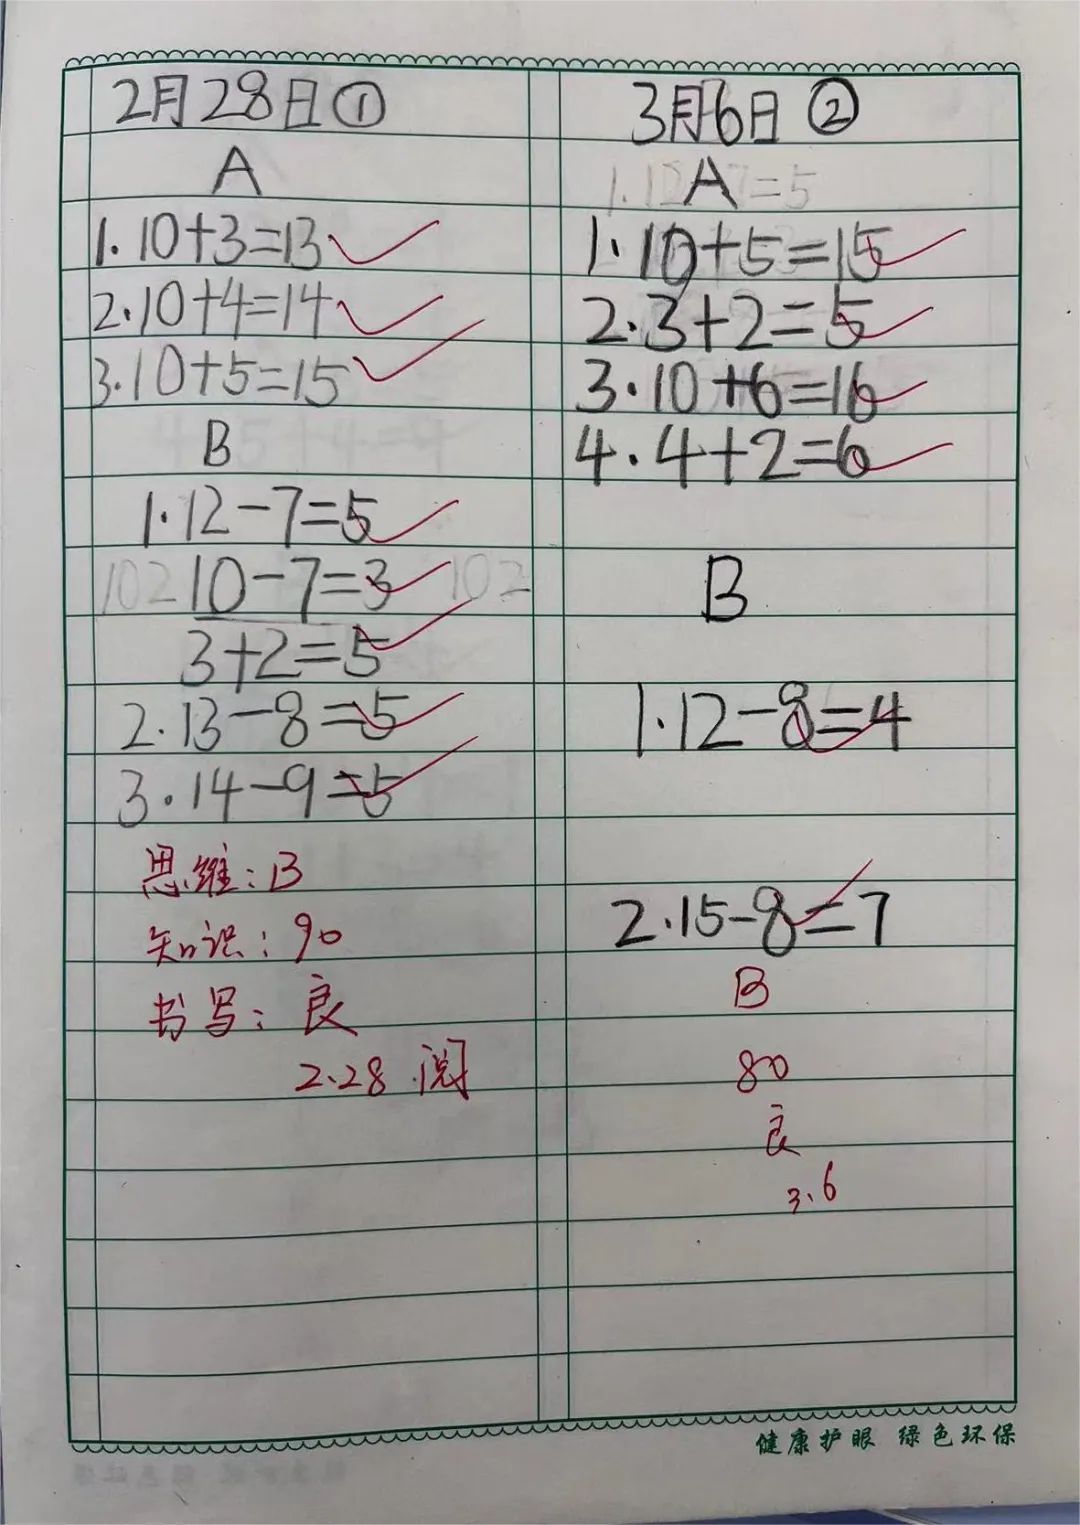 2月28日①
A
1.10+3=13
2.10+4=14
3.10+5=15
B
1.12-7=5
102 10-7=3 102
3+2=5
2.13-8=5
3.14-9=5
思维：B
知识：90
书写：良
2.28 阅
3月6日 ②
A
1.10+5=15
2.3+2=5
3.10+6=16
4.4+2=6
B
1.12-8=4
2.15-8=7
B
80
良
3.6
健康护眼 绿色环保